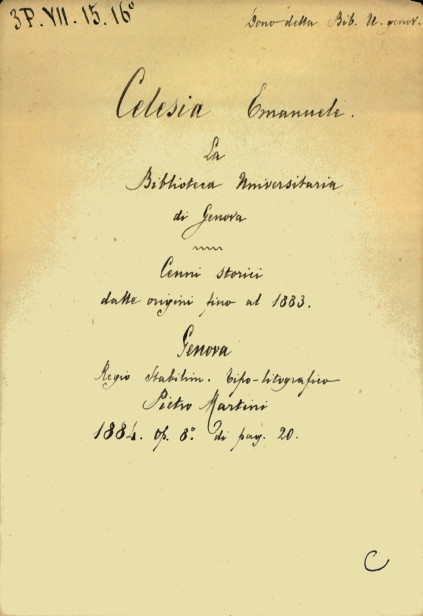 3P.VII.15.16°
Dono della Bib. U. genov.
Celesia Emanuele.
La
Biblioteca Universitaria
di Genova
Cenni storici
dalle origini fino al 1883.
Genova
Regio Stabilim. Tipo-litografico
Pietro Martini
1884. op. 8° di pag. 20.
C